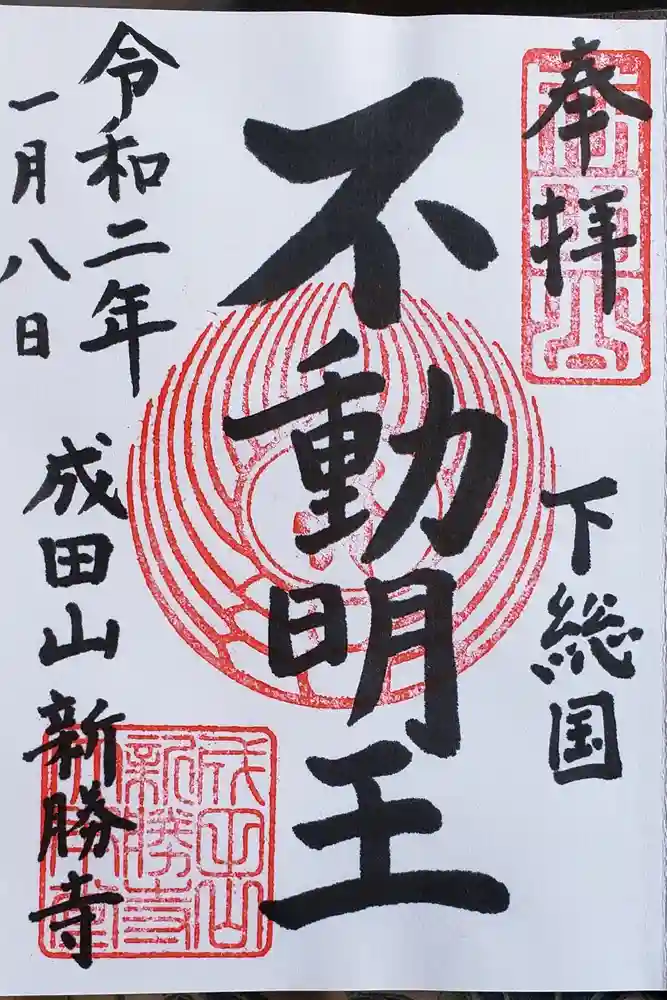 奉拝
下総国
不動明王
令和二年
一月八日
成田山 新勝寺
成田山
新勝寺